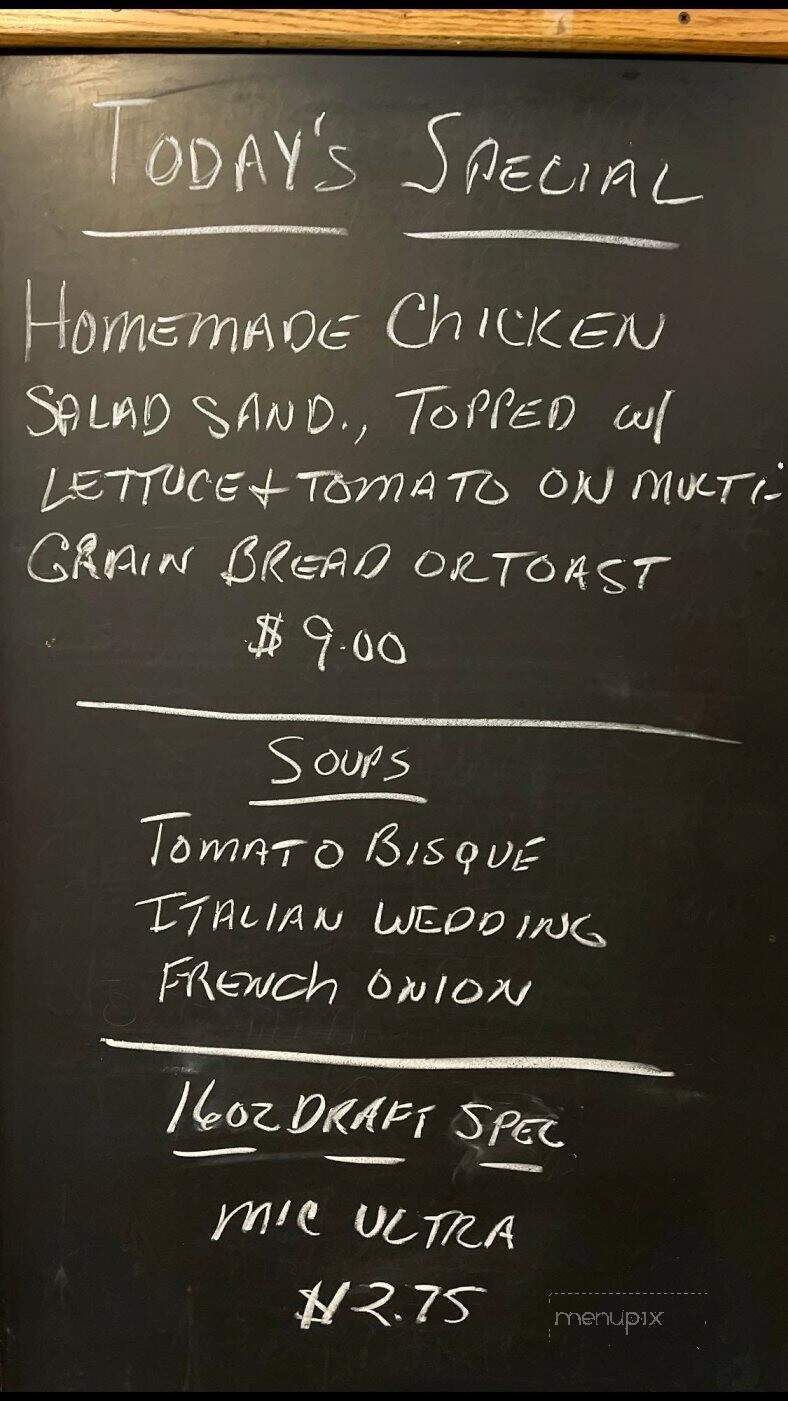 TODAY'S SPECIAL
HOMEMADE ChICKEN
SALAD SAND., TOPPED w/
LETTUCE + TOMATO ON MULTI-
GRAIN BREAD OR TOAST
$9.00
SOUPS
TOMATO BISQUE
ITALIAN WEDDING
FRENCh ONION
16oz DRAFT SPEC
MIC ULTRA
$2.75
menupix